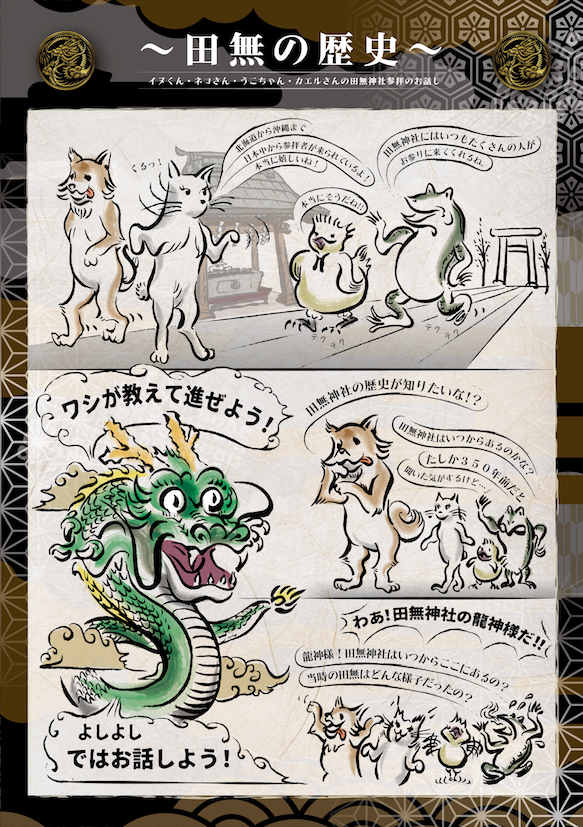 ～田無の歴史～
イヌくん・ネコさん・うこちゃん・カエルさんの田無神社参拝のお話し
田無神社にはいつもたくさんの人が
お参りに来てくれるね。
北海道から沖縄まで
日本中から参拝者が来られているよ！
本当に嬉しいね！
本当にそうだね!!
くるっ！
テク
テク
テク
テク
田無神社の歴史が知りたいな!？
田無神社はいつからあるのかな？
たしか350年前だと
聞いた気がするけど…
ワシが教えて進ぜよう！
わあ！田無神社の龍神様だ!!
龍神様！田無神社はいつからここにあるの？
当時の田無はどんな様子だったの？
よしよし
ではお話しよう！